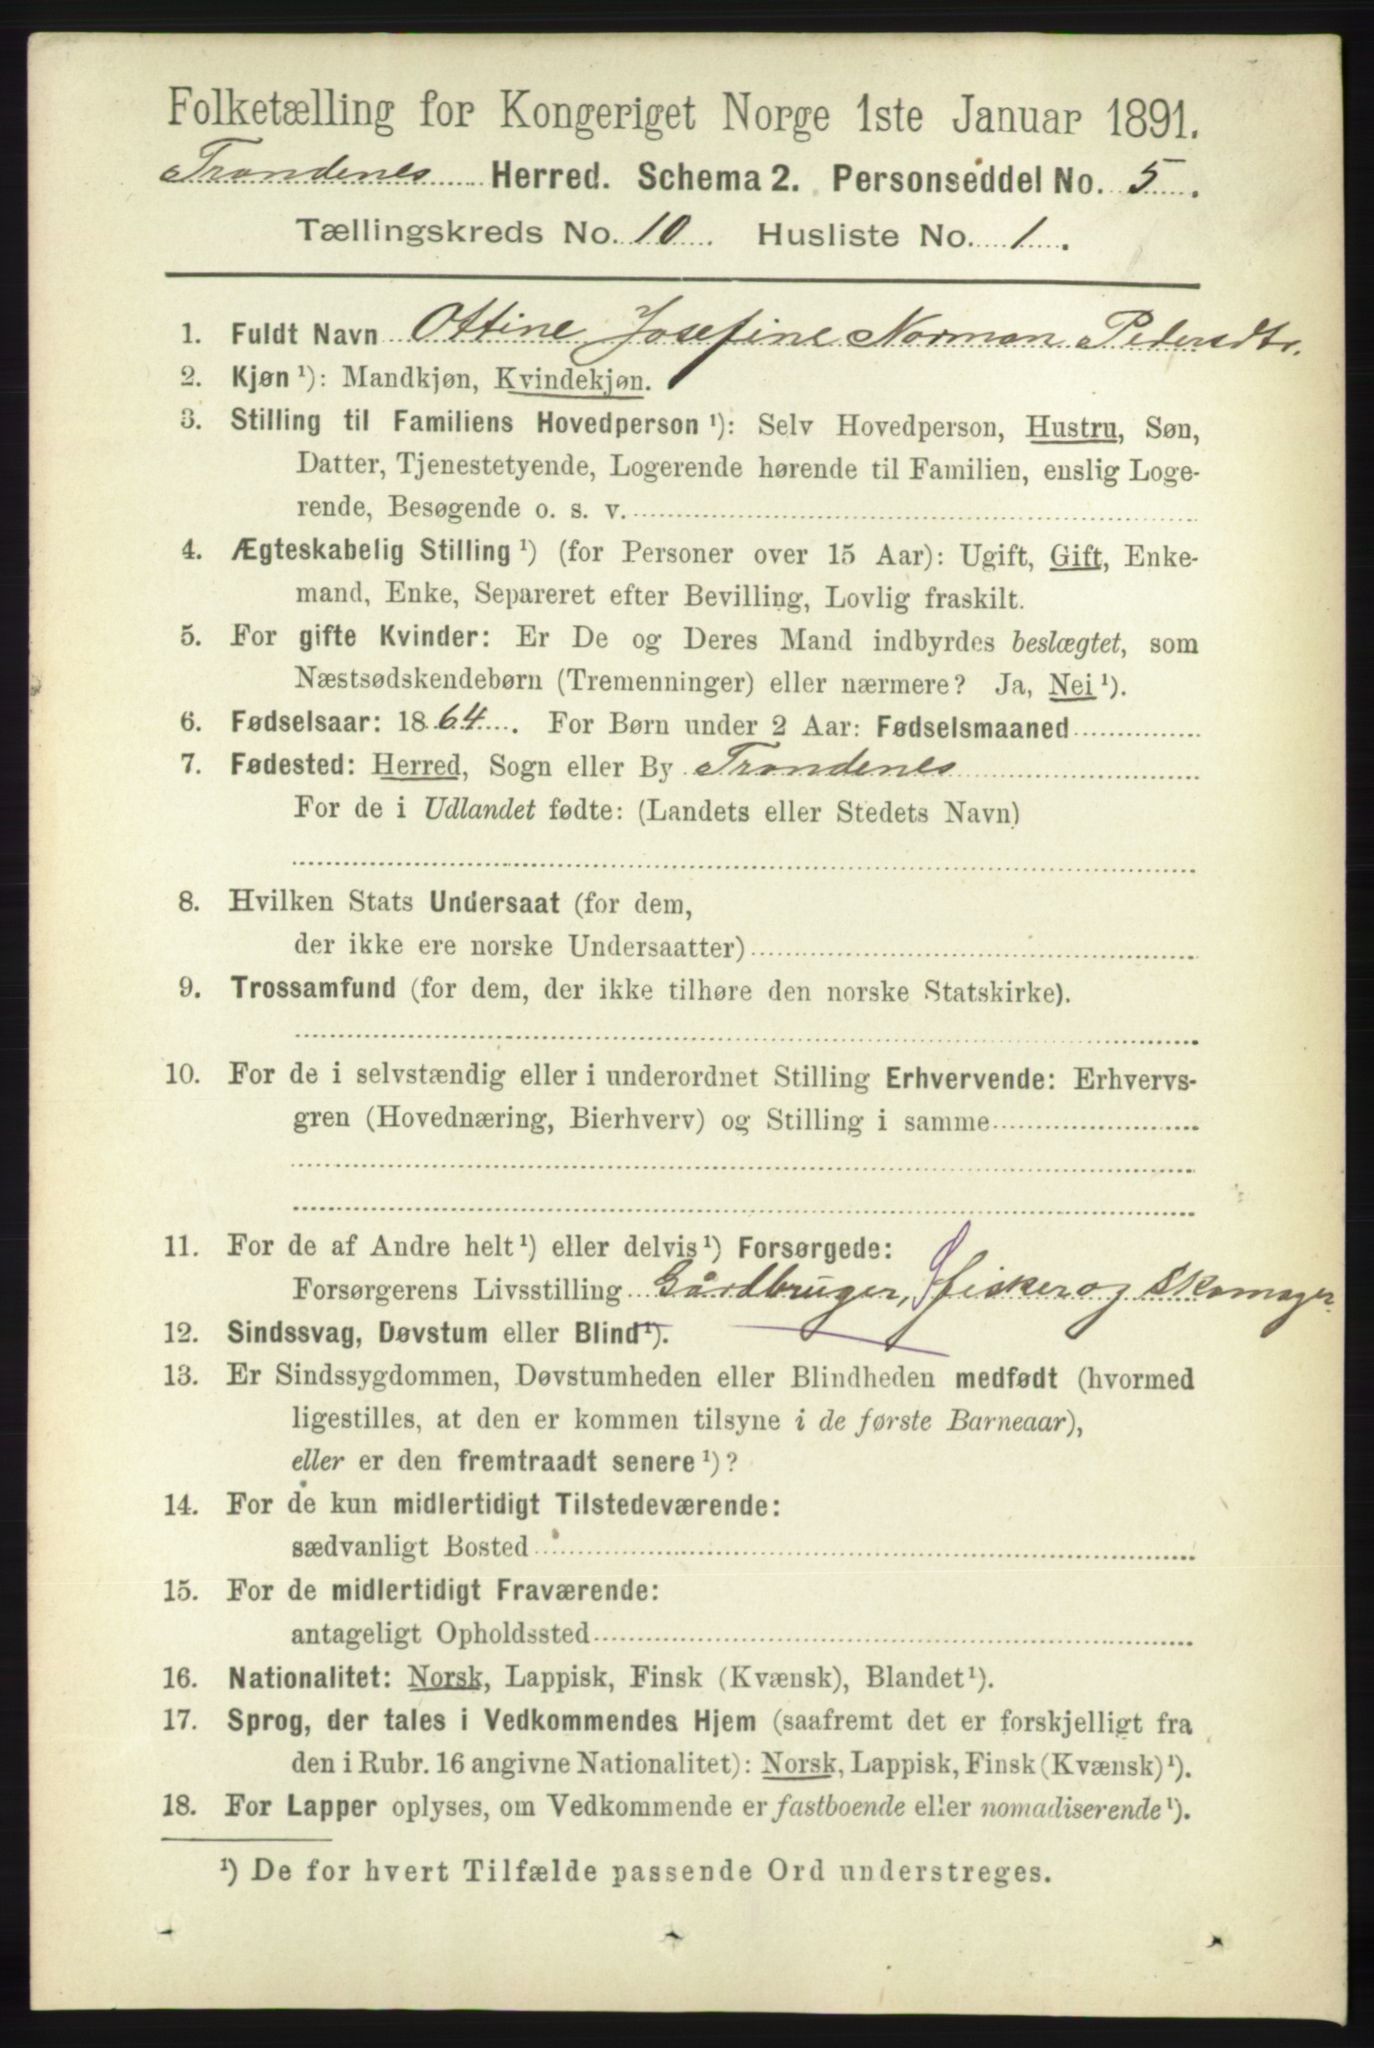 Folketælling for Kongeriget Norge 1ste Januar 1891.
Trondenes Herred. Schema 2. Personseddel No. 5.
Tællingskreds No. 10. Husliste No. 1.
1. Fuldt Navn Ottine Josefine Norman Pedersdtr.
2. Kjøn¹): Mandkjøn, Kvindekjøn.
3. Stilling til Familiens Hovedperson¹): Selv Hovedperson, Hustru, Søn,
Datter, Tjenestetyende, Logerende hørende til Familien, enslig Loge-
rende, Besøgende o. s. v.
4. Ægteskabelig Stilling¹) (for Personer over 15 Aar): Ugift, Gift, Enke-
mand, Enke, Separeret efter Bevilling, Lovlig fraskilt.
5. For gifte Kvinder: Er De og Deres Mand indbyrdes beslægtet, som
Næstsødskendebørn (Tremenninger) eller nærmere? Ja, Nei¹).
6. Fødselsaar: 1864. For Børn under 2 Aar: Fødselsmaaned
7. Fødested: Herred, Sogn eller By Trondenes
For de i Udlandet fødte: (Landets eller Stedets Navn)
8. Hvilken Stats Undersaat (for dem,
der ikke ere norske Undersaatter)
9. Trossamfund (for dem, der ikke tilhøre den norske Statskirke).
10. For de i selvstændig eller i underordnet Stilling Erhvervende: Erhvervs-
gren (Hovednæring, Bierhverv) og Stilling i samme
11. For de af Andre helt¹) eller delvis¹) Forsørgede:
Forsørgerens Livsstilling Gårdbruger, fisker og Skomager
12. Sindssvag, Døvstum eller Blind¹).
13. Er Sindssygdommen, Døvstumheden eller Blindheden medfødt (hvormed
ligestilles, at den er kommen tilsyne i de første Barneaar),
eller er den fremtraadt senere¹)?
14. For de kun midlertidigt Tilstedeværende:
sædvanligt Bosted
15. For de midlertidigt Fraværende:
antageligt Opholdssted
16. Nationalitet: Norsk, Lappisk, Finsk (Kvænsk), Blandet¹).
17. Sprog, der tales i Vedkommendes Hjem (saafremt det er forskjelligt fra
den i Rubr. 16 angivne Nationalitet): Norsk, Lappisk, Finsk (Kvænsk)¹).
18. For Lapper oplyses, om Vedkommende er fastboende eller nomadiserende¹).
¹) De for hvert Tilfælde passende Ord understreges.